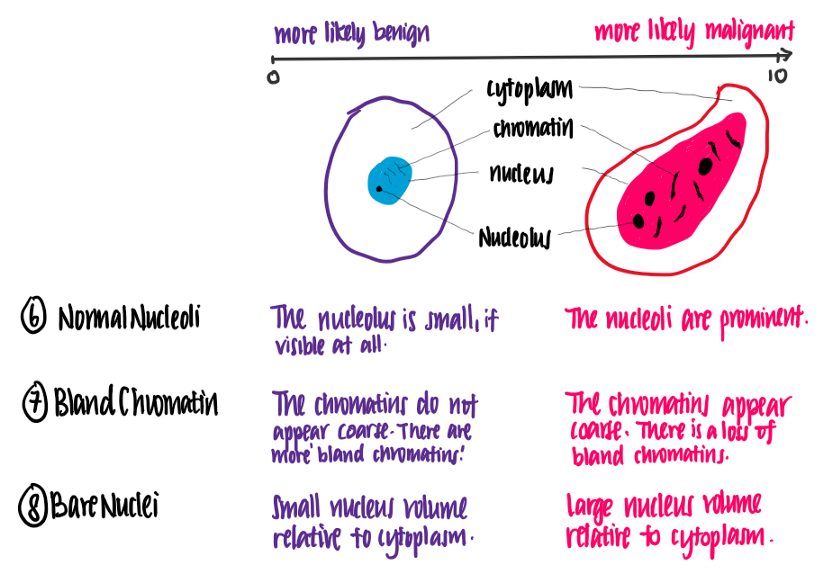 more likely benign
more likely malignant
0
10
cytoplasm
chromatin
nucleus
Nucleolus
6 Normal Nucleoli
The nucleolus is small, if
visible at all.
The nucleoli are prominent.
7 Bland Chromatin
The chromatins do not
appear coarse. There are
more 'bland chromatins'.
The chromatins appear
coarse. There is a loss of
bland chromatins.
8 Bare Nuclei
Small nucleus volume
relative to cytoplasm.
Large nucleus volume
relative to cytoplasm.